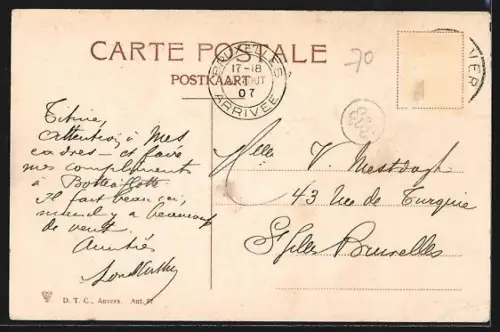 CARTE POSTALE
POSTKAART
BRUXELLES
17-18
AOUT
07
ARRIVÉE
70
Titine,
Attention à Mes
cadres - et faire
mes compliments
à
Il fait beau ici,
quand il y a beaucoup
de vent.
Amitiés
Mlle V. Mestdagh
43 Rue de Turquie
St Gilles Bruxelles
D. T. C., Anvers. Ant. 67